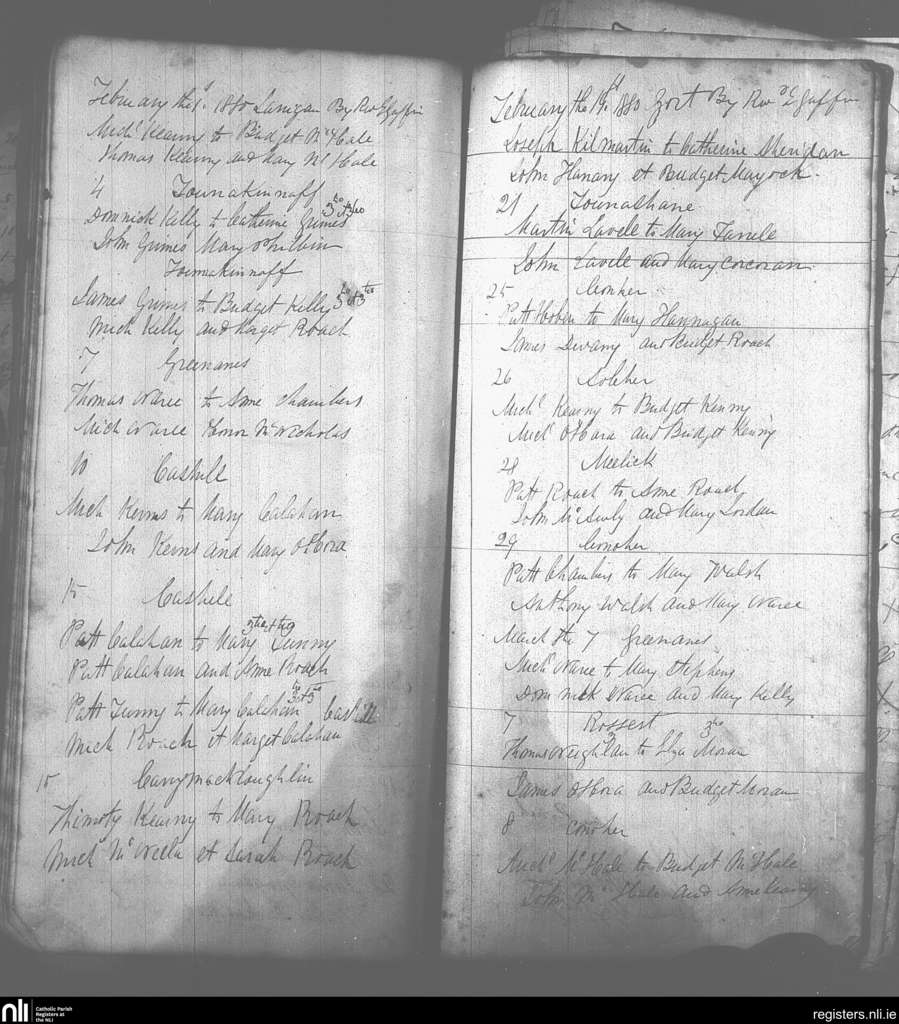 February the 1. 1880 Lanigan By Rev E Gaffin
Mich.l Kearny to Bridget Mc Hale
Thomas Kearny and Mary Mc Hale
4 Tounakinnoff
Domnick Kelly to Catherine Grimes 3to & 3to
John Grimes Mary Philbin
Tounakinnoff
James Grimes to Bridget Kelly 3to & 3to
Mich Kelly and Marget Roach
7 Greenanes
Thomas to Anne Chambers
Mich Honor Mc Nicholas
10 Cashill
Mich Kerins to Mary Calahan
John Kerins and Mary O'Hora
15 Cashele
Patt Calahan to Mary Tunny
Patt Calahan and Anne Roach
Patt Tunny to Mary Calahan Cashill
Mich Roach et Marget Calahan
15 Carrymackloughlin
Thimoty Kearny to Mary Roach
Mich et Sarah Roach
February the 1880 Gort By Rev.d E Gaffin
Joseph Kilmartin to Catherine Sheridan
John Hanary et Bridget Mayock.
21 Tounashane
Martin Lavele to Mary Farrele
John Lavele and Mary Corcoran
25 Conher
Patt Hoban to Mary Hannagan
James Devany and Bridget Roach
26
Mich.l Kearny to Bridget Kenny
Mich.l O'Hara and Bridget Kenny
28 Meelick
Patt Roach to Anne Roach
John and Mary Jordan
29 Conoher
Patt Chambers to Mary Walsh
Anthony Walsh and Mary
March the 7 Greenanes
Mich.l to Mary Stephens
Dominick and Mary Kelly
7 Rossest
Thomas to Eliza Moran 3to
James O'Hora and Bridget Moran
8 Conoher
Mich.l Mc Hale to Bridget Mc Hale
John Mc Hale and Anne
nli
Catholic Parish
Registers at
the NLI
registers.nli.ie